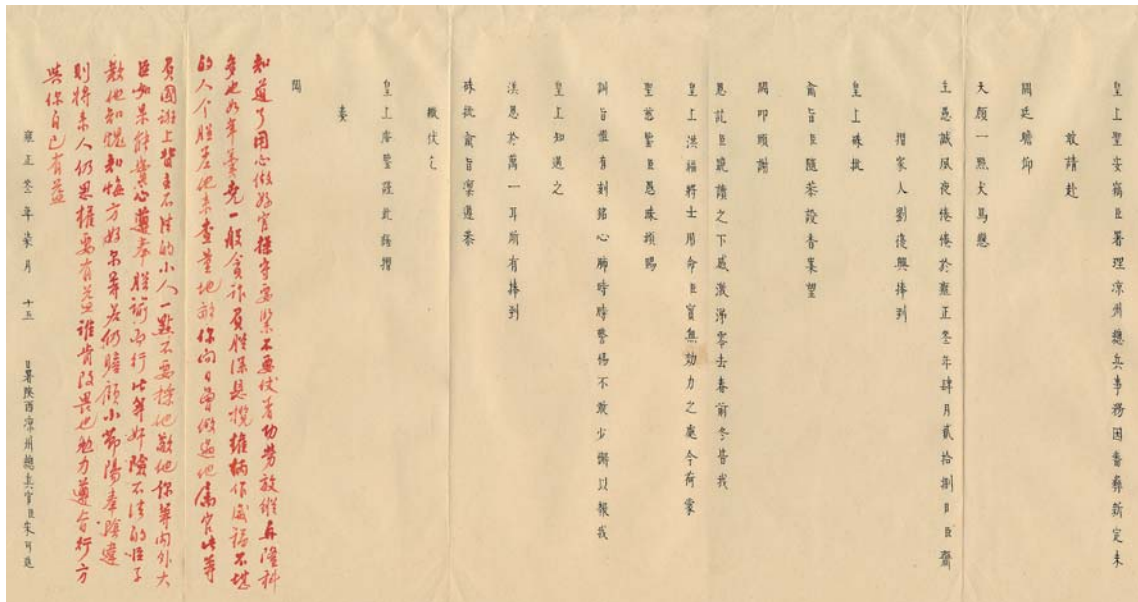 皇上聖安竊臣署理涼州總兵事務因番彝新定未
敢請赴
闕廷瞻仰
天顏一點犬馬戀
主愚誠夙夜惓惓於雍正叁年肆月貳拾捌日臣齎
摺家人劉復興捧到
皇上硃批
諭旨臣隨恭設香案望
闕叩頭謝
恩訖臣跪讀之下感激涕零去春前冬皆我
皇上洪福將士用命臣實無効力之處今荷蒙
聖慈鑒臣愚昧頒賜
訓旨惟有刻銘心肺時時警惕不敢少懈以報我
皇上知遇之
洪恩於萬一耳所有捧到
硃批諭旨凜遵恭
繳伏乞
皇上睿鑒謹此繕摺
奏
聞
知道了用心做好官操守要緊不要仗有功勞放縱再隆科
多也如年羹堯一般貪詐負朕深恩攬權柄作威福不堪
的人个朕差他來查量地畝你向日曾做過他屬官此等
負國誑上背主不法的小人一點不要採他敬他你等內外大
臣如果能齊心遵奉朕諭而行此等奸險不法的子
敎他知愧知悔方好尔等若仍瞻顧小節陽奉陰違
則將來人仍思權要有益誰肯改畏也勉力遵旨行方
與你自己有益
雍正叁年柒月 十五 日署陝西涼州總兵官臣宋可進